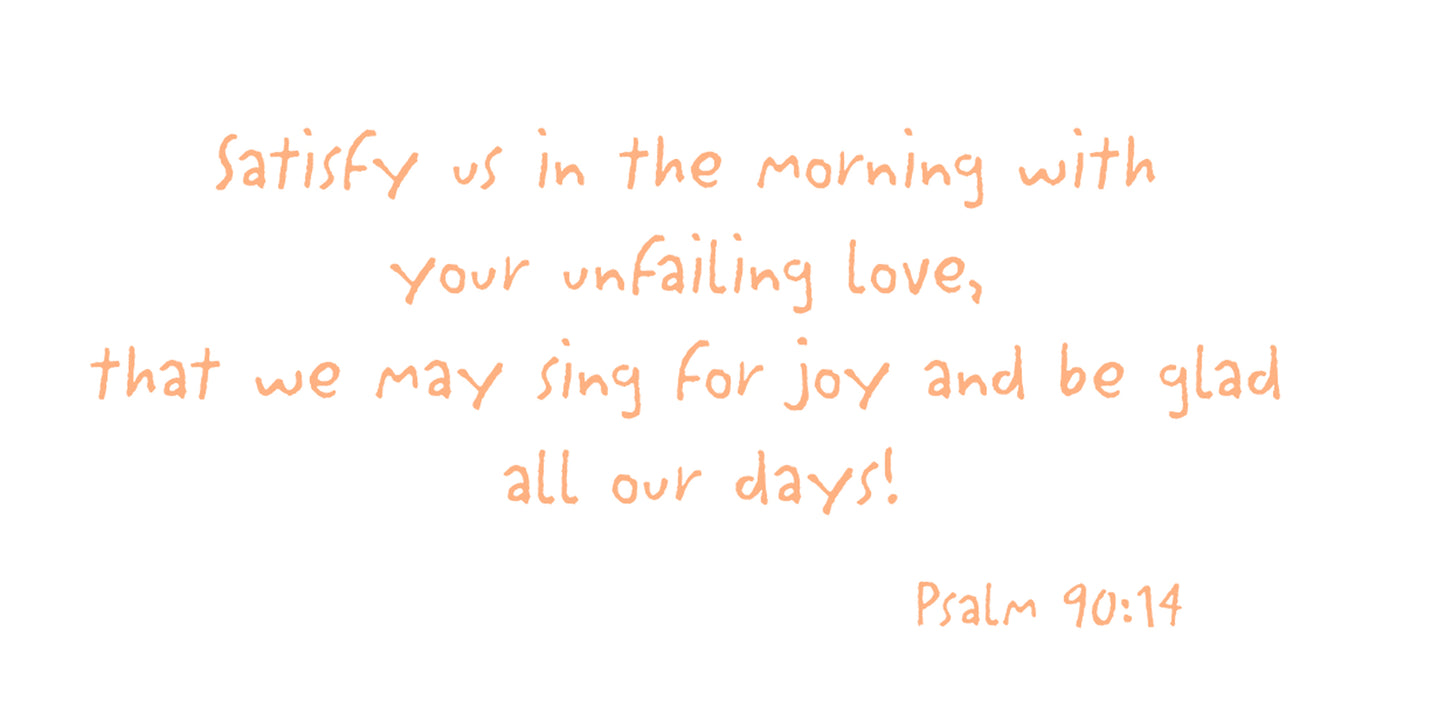 Satisfy us in the morning with
your unfailing love,
that we may sing for joy and be glad
all our days!
Psalm 90:14